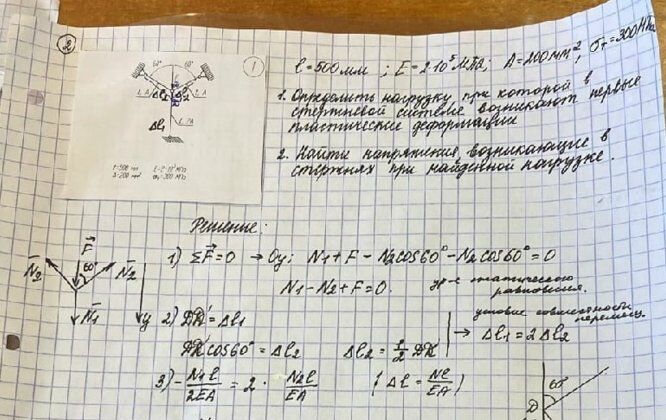 2
1
60° 60°
Δl₁ Δl₂
l, A l, A
Δl₁
l, 2A
l=500 мм E=2·10⁵ МПа
A=200 мм² σт=300 МПа
l=500мм ; E=2·10⁵МПа; A=200мм², σт=300МПа
1. Определить нагрузку, при которой в
стержневой системе возникают первые
пластические деформации
2. Найти напряжения, возникающие в
стержнях при найденной нагрузке.
Решение:
1) ΣF=0 → Oy: N1+F-N2cos60°-N2cos60°=0
N1-N2+F=0. ур-е статического
равновесия.
F 60° N2 N2 N1 y
2) DD'=Δl1
DD'cos60°=Δl2 Δl2=1/2 DD'
условие совместности
перемещ.
→ Δl1=2Δl2
3) -N1l/2EA = 2· N2l/EA {Δl=Nl/EA}
60°
D